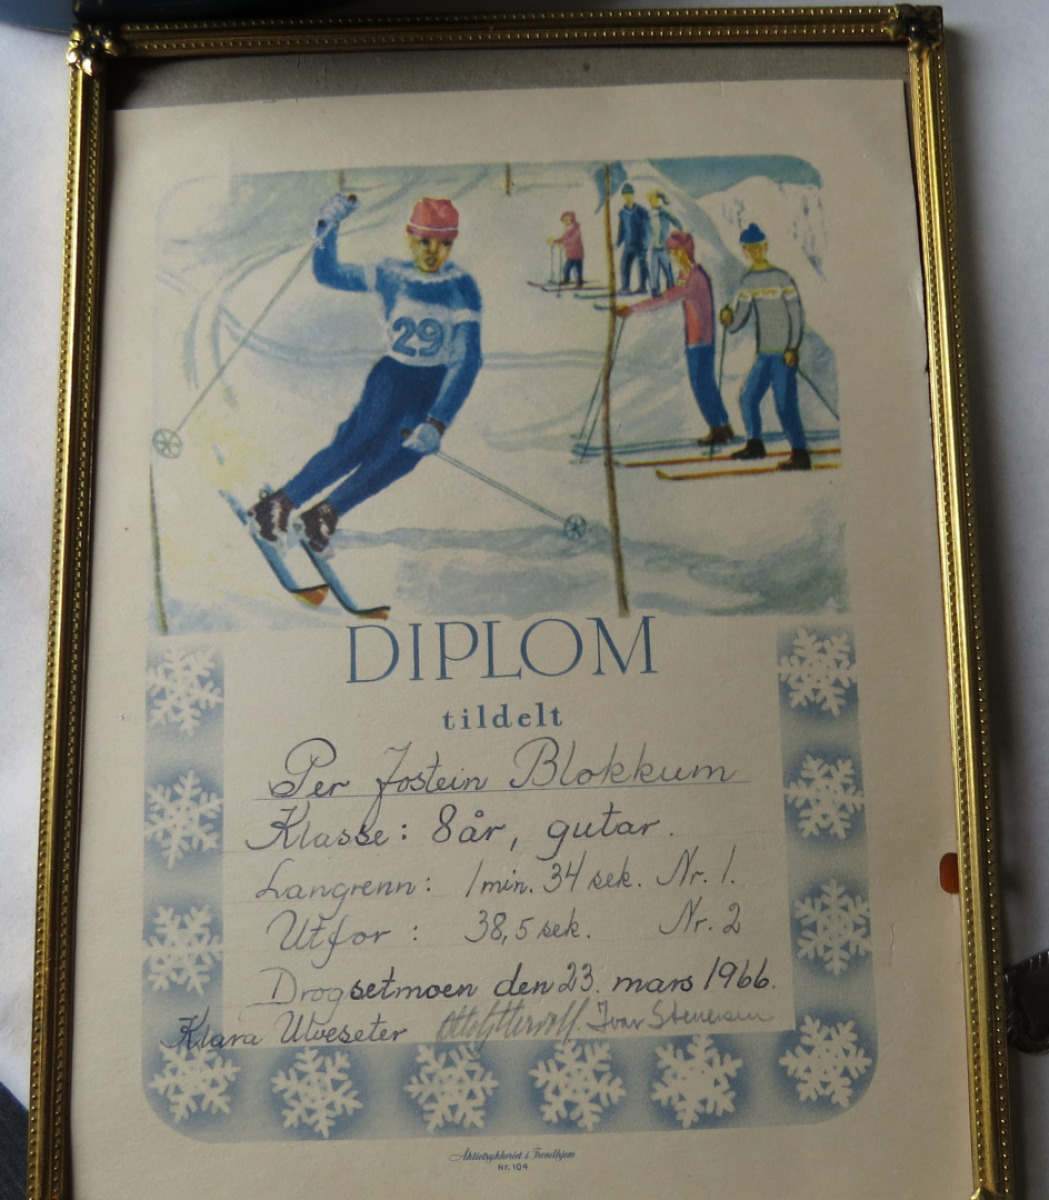 29
DIPLOM
tildelt
Per Jostein Blokkum
Klasse: 8 år, gutar.
Langrenn: 1 min. 34 sek. Nr. 1.
Utfor: 38,5 sek. Nr. 2
Drogsetmoen den 23. mars 1966.
Klara Utveseter Ivar Stenersen
Aktietrykkeriet i Trondhjem
Nr. 104